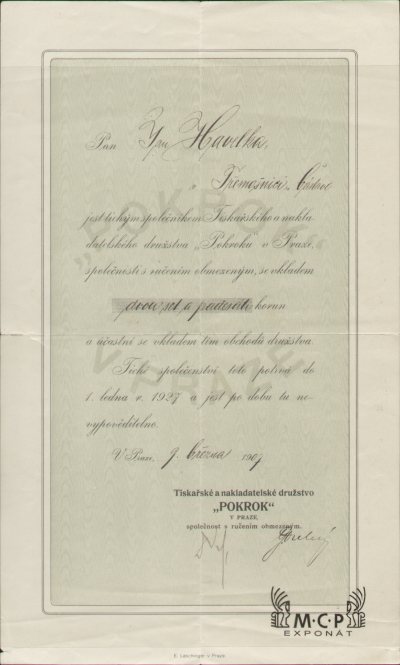 Pan Havelka
Třemošnici
jest tichým společníkem Tiskařského a nakla-
datelského družstva „Pokroku“ v Praze,
společnosti s ručením obmezeným, se vkladem
korun
a účastní se vkladem tím obchodů družstva.
Tiché společenství toto potrvá do
1. ledna r. 1927 a jest po dobu tu ne-
vypověditelno.
V Praze, 9. března 190
Tiskařské a nakladatelské družstvo
„POKROK“
V PRAZE,
společnost s ručením obmezeným.
„POKROK“
V PRAZE
M·C·P
EXPONÁT